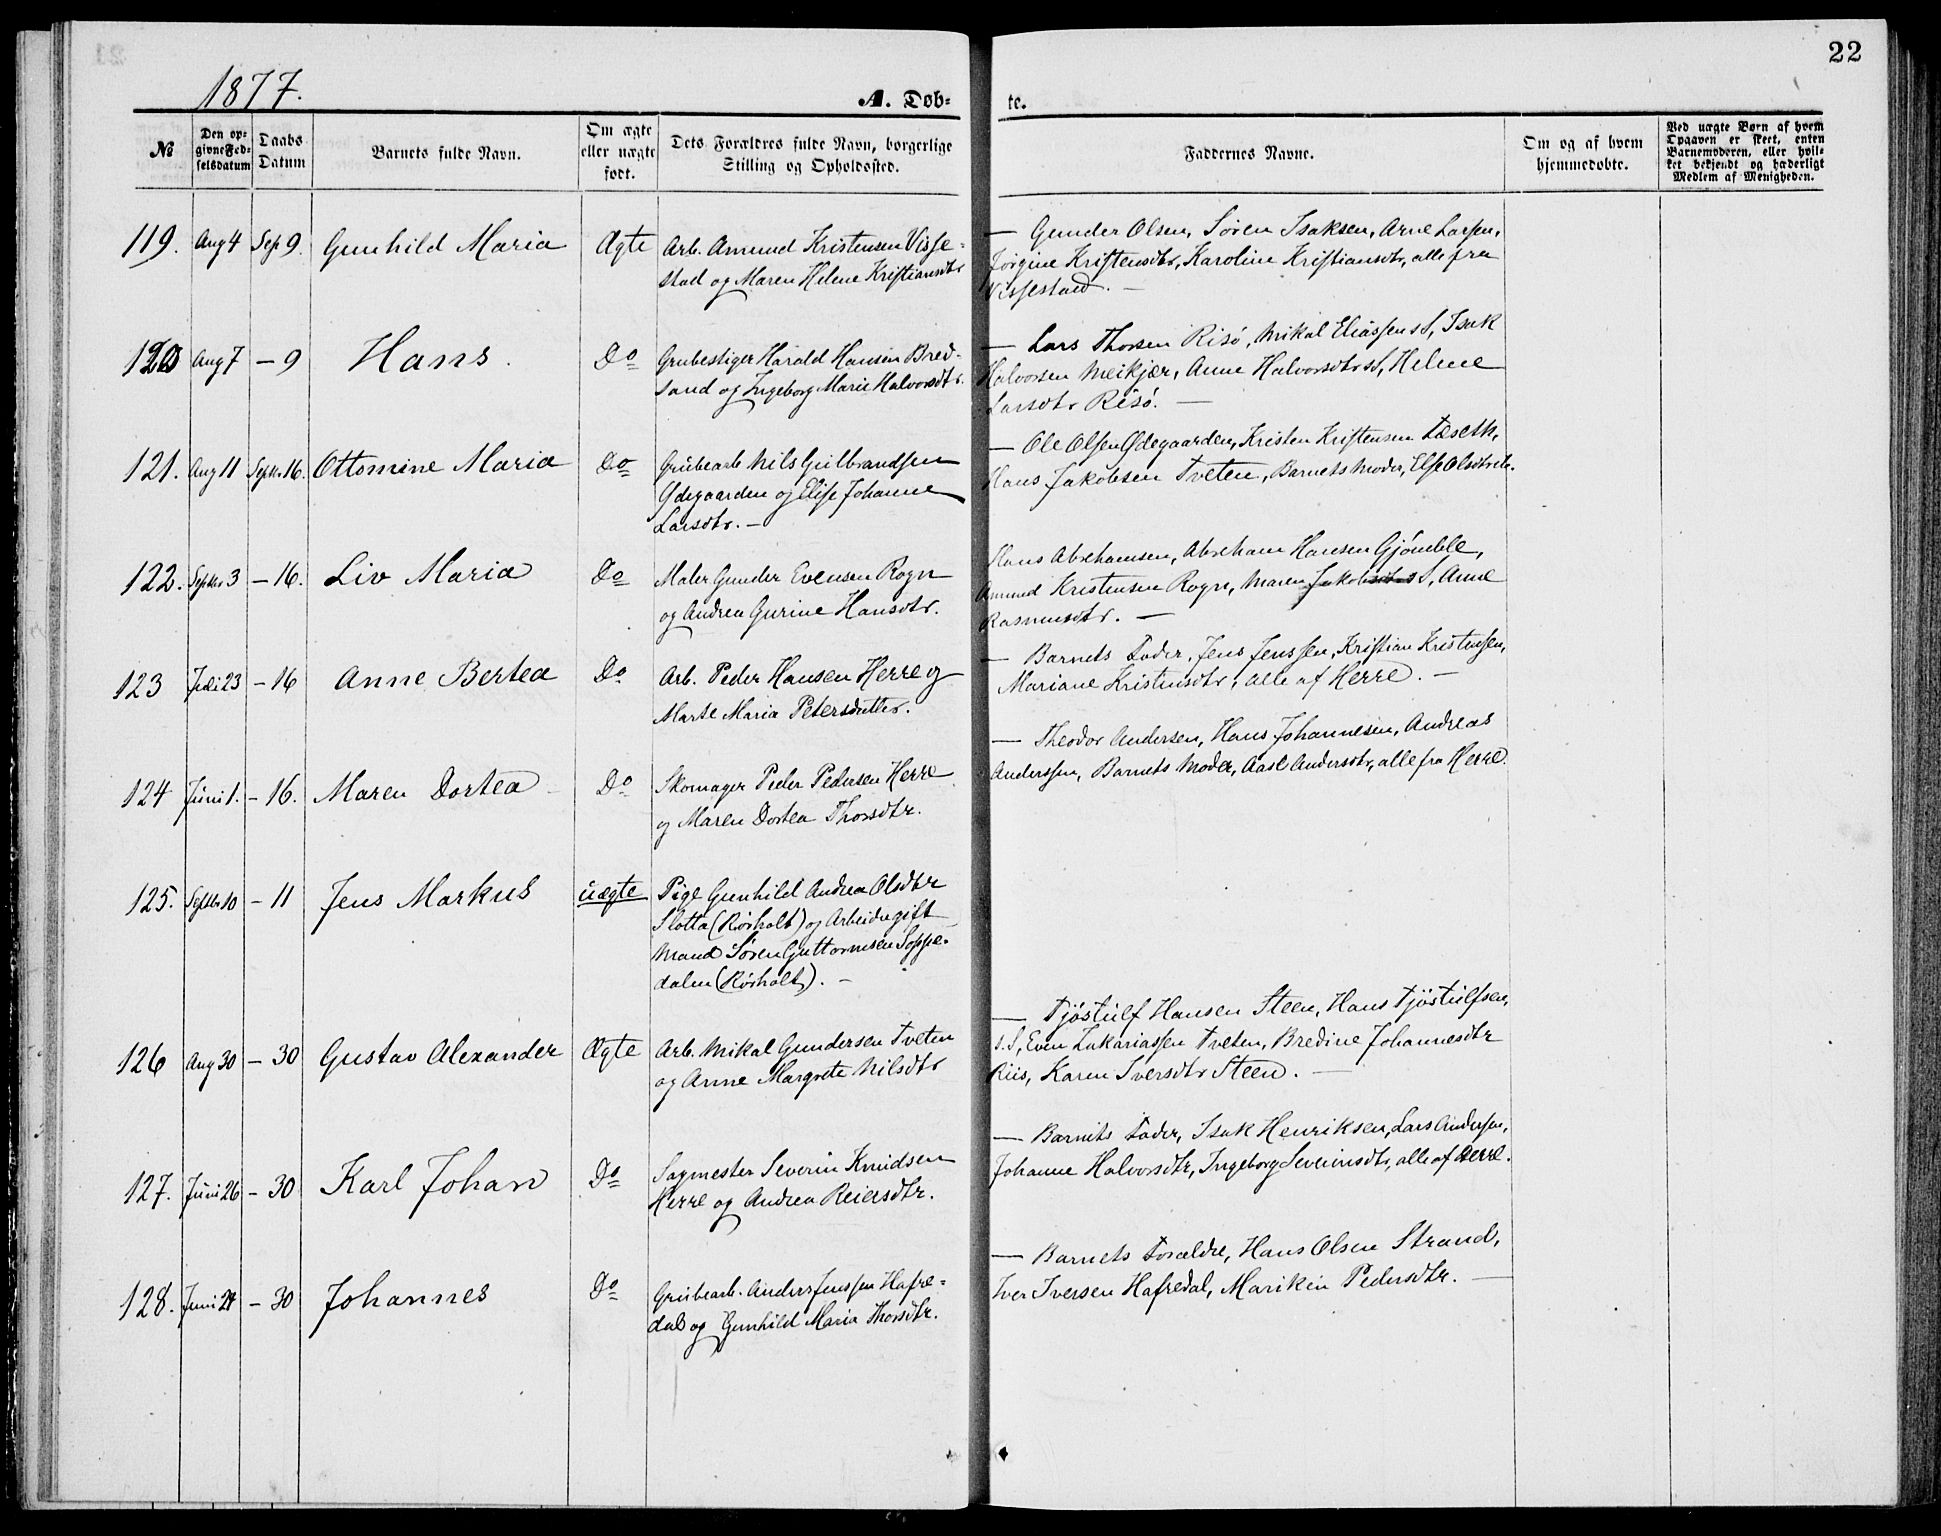 22
1877.
A. Døb-
te.
№
Den op-
givne Fød-
selsdatum
Daabs
Datum
Barnets fulde Navn.
Om ægte
eller uægte
født.
Dets Forældres fulde Navn, borgerlige
Stilling og Opholdssted.
Faddernes Navne.
Om og af hvem
hjemmedøbte.
Ved uægte Børn af hvem
Opgaven er skeet, enten
Barnemoderen, eller hvil-
ket bekjendt og hæderligt
Medlem af Menigheden.
119. Aug 4 Sep 9. Gunhild Maria Ægte
Arb. Amund Kristensen Visse-
stad og Maren Helene Kristiansdtr
— Gunder Olsen, Søren Isaksen, Arne Larsen,
Jørgine Kristensdtr, Karoline Kristiansdtr, alle fra
Vissestad. —
120 Aug 7 – 9 Hans. Do
Grubestiger Harald Hansen Bred-
sand og Ingeborg Marie Halvorsdtr.
— Lars Thorsen Risø, Mikal Eliassen s S, Isak
Halvorsen Meikjær, Anne Halvorsdtr s S, Helene
Larsdtr Risø. —
121. Aug 11 Septbr 16. Ottomine Maria Do
Grubearb Nils Gulbrandsen
Ødegaarden og Elise Johanne
Larsdtr. —
— Ole Olsen Ødegaarden, Kristen Kristensen Læseth,
Hans Jakobsen Tveten, Barnets Moder, Else Olsdtr
122. Septbr 3 – 16. Liv Maria Do
Maler Gunder Evensen Rogn
og Andrea Gurine Hansdtr.
Hans Abrehamsen, Abreham Hansen Gjømble,
Amund Kristensen Rogn, Maren Jakobsdtr s S, Anne
Rasmusdtr. —
123 Juli 23 – 16 Anne Bertea Do
Arb. Peder Hansen Herre og
Marte Maria Petersdatter.
— Barnets Fader, Jens Jenssen, Kristian Kristensen,
Mariane Kristensdtr, alle af Herre. —
124 Juni 1. – 16. Maren Dortea Do
Skomager Peder Pedersen Herre
og Maren Dortea Thorsdtr.
— Theodor Andersen, Hans Johannesen, Andreas
Anderssen, Barnets Moder, Aase Andersdtr, alle fra Herre.
125. Septbr 10 – 11 Jens Markus uægte
Pige Gunhild Andrea Olsdtr
Slotta (Rørholt) og Arbeider gift
Mand Søren Guttormsen Soppe-
dalen (Rørholt). —
126 Aug 30 – 30 Gustav Alexander Ægte
Arb. Mikal Gundersen Tveten
og Anne Margrete Nilsdtr
— Tjøstulf Hansen Steen, Hans Tjøstulfsen,
s. S, Even Zakariassen Tveten, Bredine Johannesdtr
Riis, Karen Iversdtr Steen. —
127. Juni 26 – 30 Karl Johan Do
Sagmester Severin Knudsen
Herre og Andrea Reiersdtr.
— Barnets Fader, Isak Henriksen, Lars Andersen,
Johanne Halvorsdtr, Ingeborg Severinsdtr, alle af Herre.
128. Juni 28 – 30 Johannes Do
Grubearb. Anders Jenssen Hafre-
dal og Gunhild Maria Thorsdtr.
— Barnets Forældre, Hans Olsen Strand,
Iver Iversen Hafredal, Mariken Pedersdtr. —